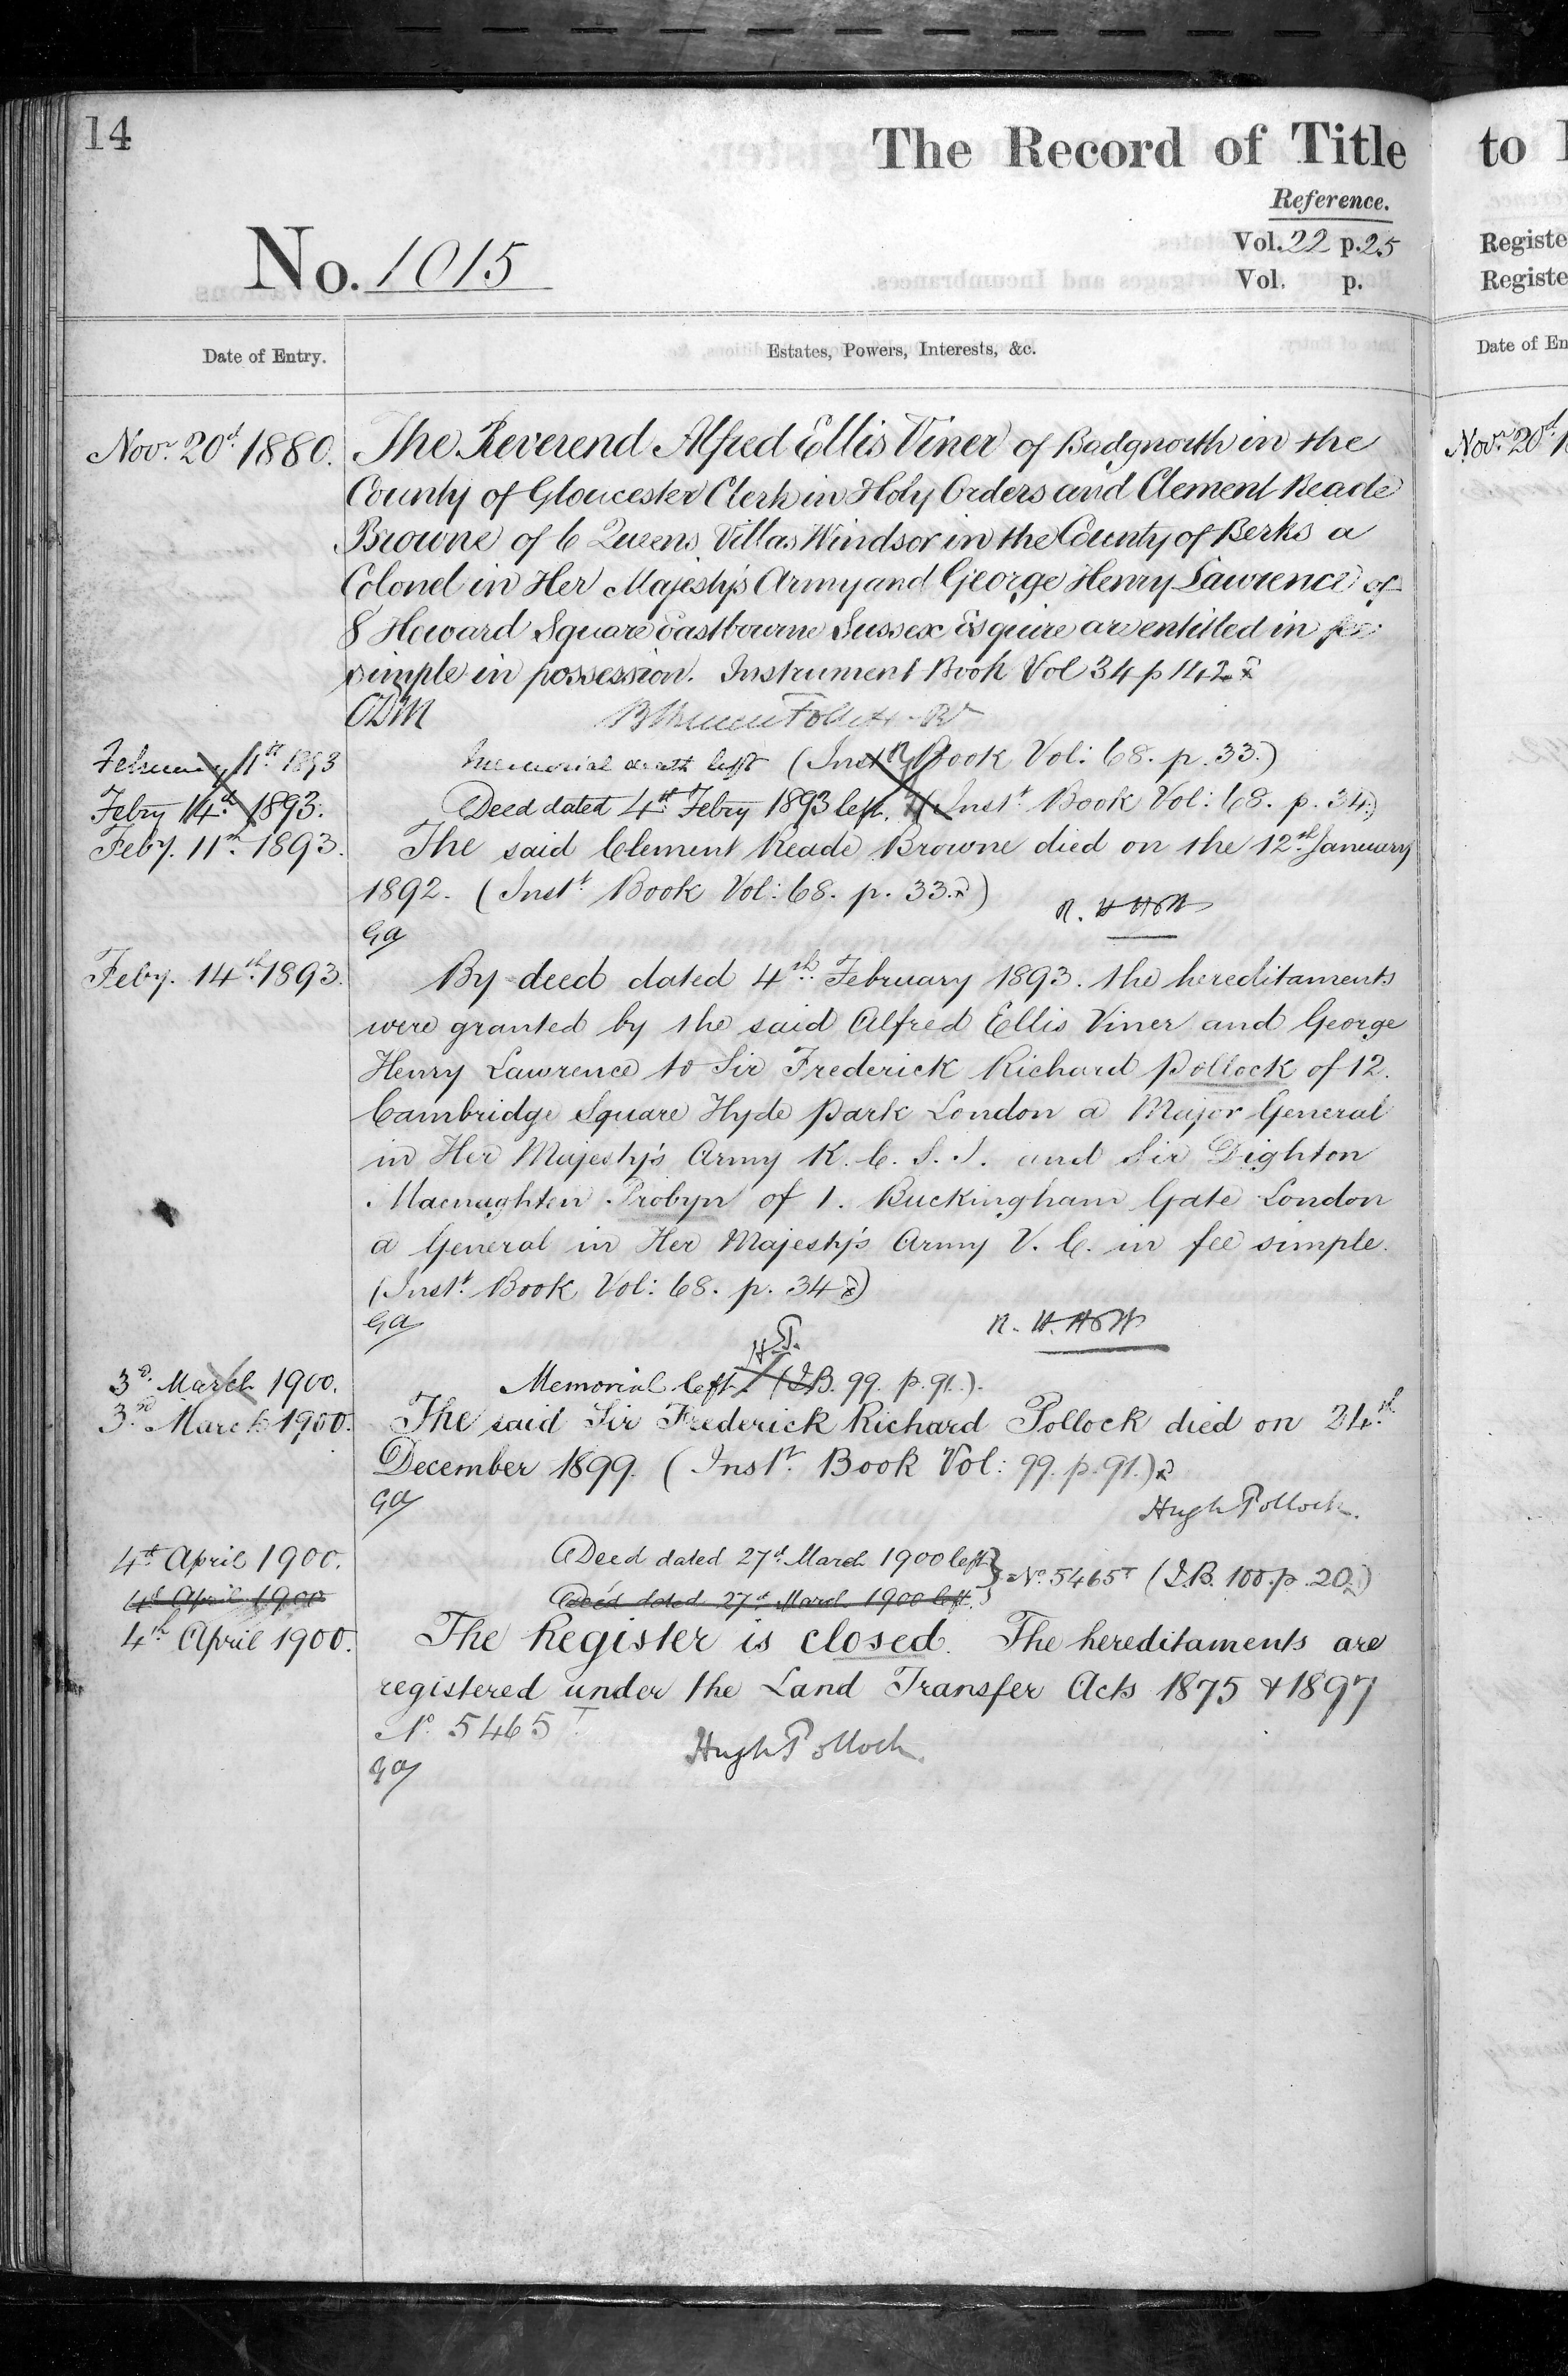 14
The Record of Title
Reference.
No. 1015
Vol. 22 p. 25
Vol. p.
Date of Entry.
Estates, Powers, Interests, &c.
Novr. 20th 1880. The Reverend Alfred Ellis Viner of Badgnorth in the
County of Gloucester Clerk in Holy Orders and Clement Reade
Browne of 6 Queens Villas Windsor in the County of Berks a
Colonel in Her Majesty's Army and George Henry Lawrence of
8 Howard Square Eastbourne Sussex Esquire are entitled in fee
simple in possession. Instrument Book Vol 34 p 142
ODM
February 11th 1893 Memorial death left (Inst Book Vol: 68. p. 33.)
Febry 14th 1893. Deed dated 4th Febry 1893 left. (Inst. Book Vol: 68. p. 34.)
Feby. 11th 1893. The said Clement Reade Browne died on the 12th January
1892. (Inst. Book Vol: 68. p. 33.)
GA
Feby. 14th 1893. By deed dated 4th February 1893. the hereditaments
were granted by the said Alfred Ellis Viner and George
Henry Lawrence to Sir Frederick Richard Pollock of 12.
Cambridge Square Hyde Park London a Major General
in Her Majesty's Army K. C. S. I. and Sir Dighton
Macnaghten Probyn of 1. Buckingham Gate London
a General in Her Majesty's Army V. C. in fee simple.
(Inst. Book Vol: 68. p. 34)
GA
H.P.
3rd March 1900. Memorial left. (I.B. 99. p. 91.).
3rd March 1900. The said Sir Frederick Richard Pollock died on 24th
December 1899. (Inst. Book Vol: 99. p. 91.)
GA Hugh Pollock.
4th April 1900. A Deed dated 27th March 1900 left } No. 5465T (I.B. 100. p. 20.)
4th April 1900 A Deed dated 27th March 1900 left.
4th April 1900. The Register is closed. The hereditaments are
registered under the Land Transfer Acts 1875 & 1897
No. 5465T. Hugh Pollock.
GA
to
Registe
Registe
Date of En
Novr. 20th 1